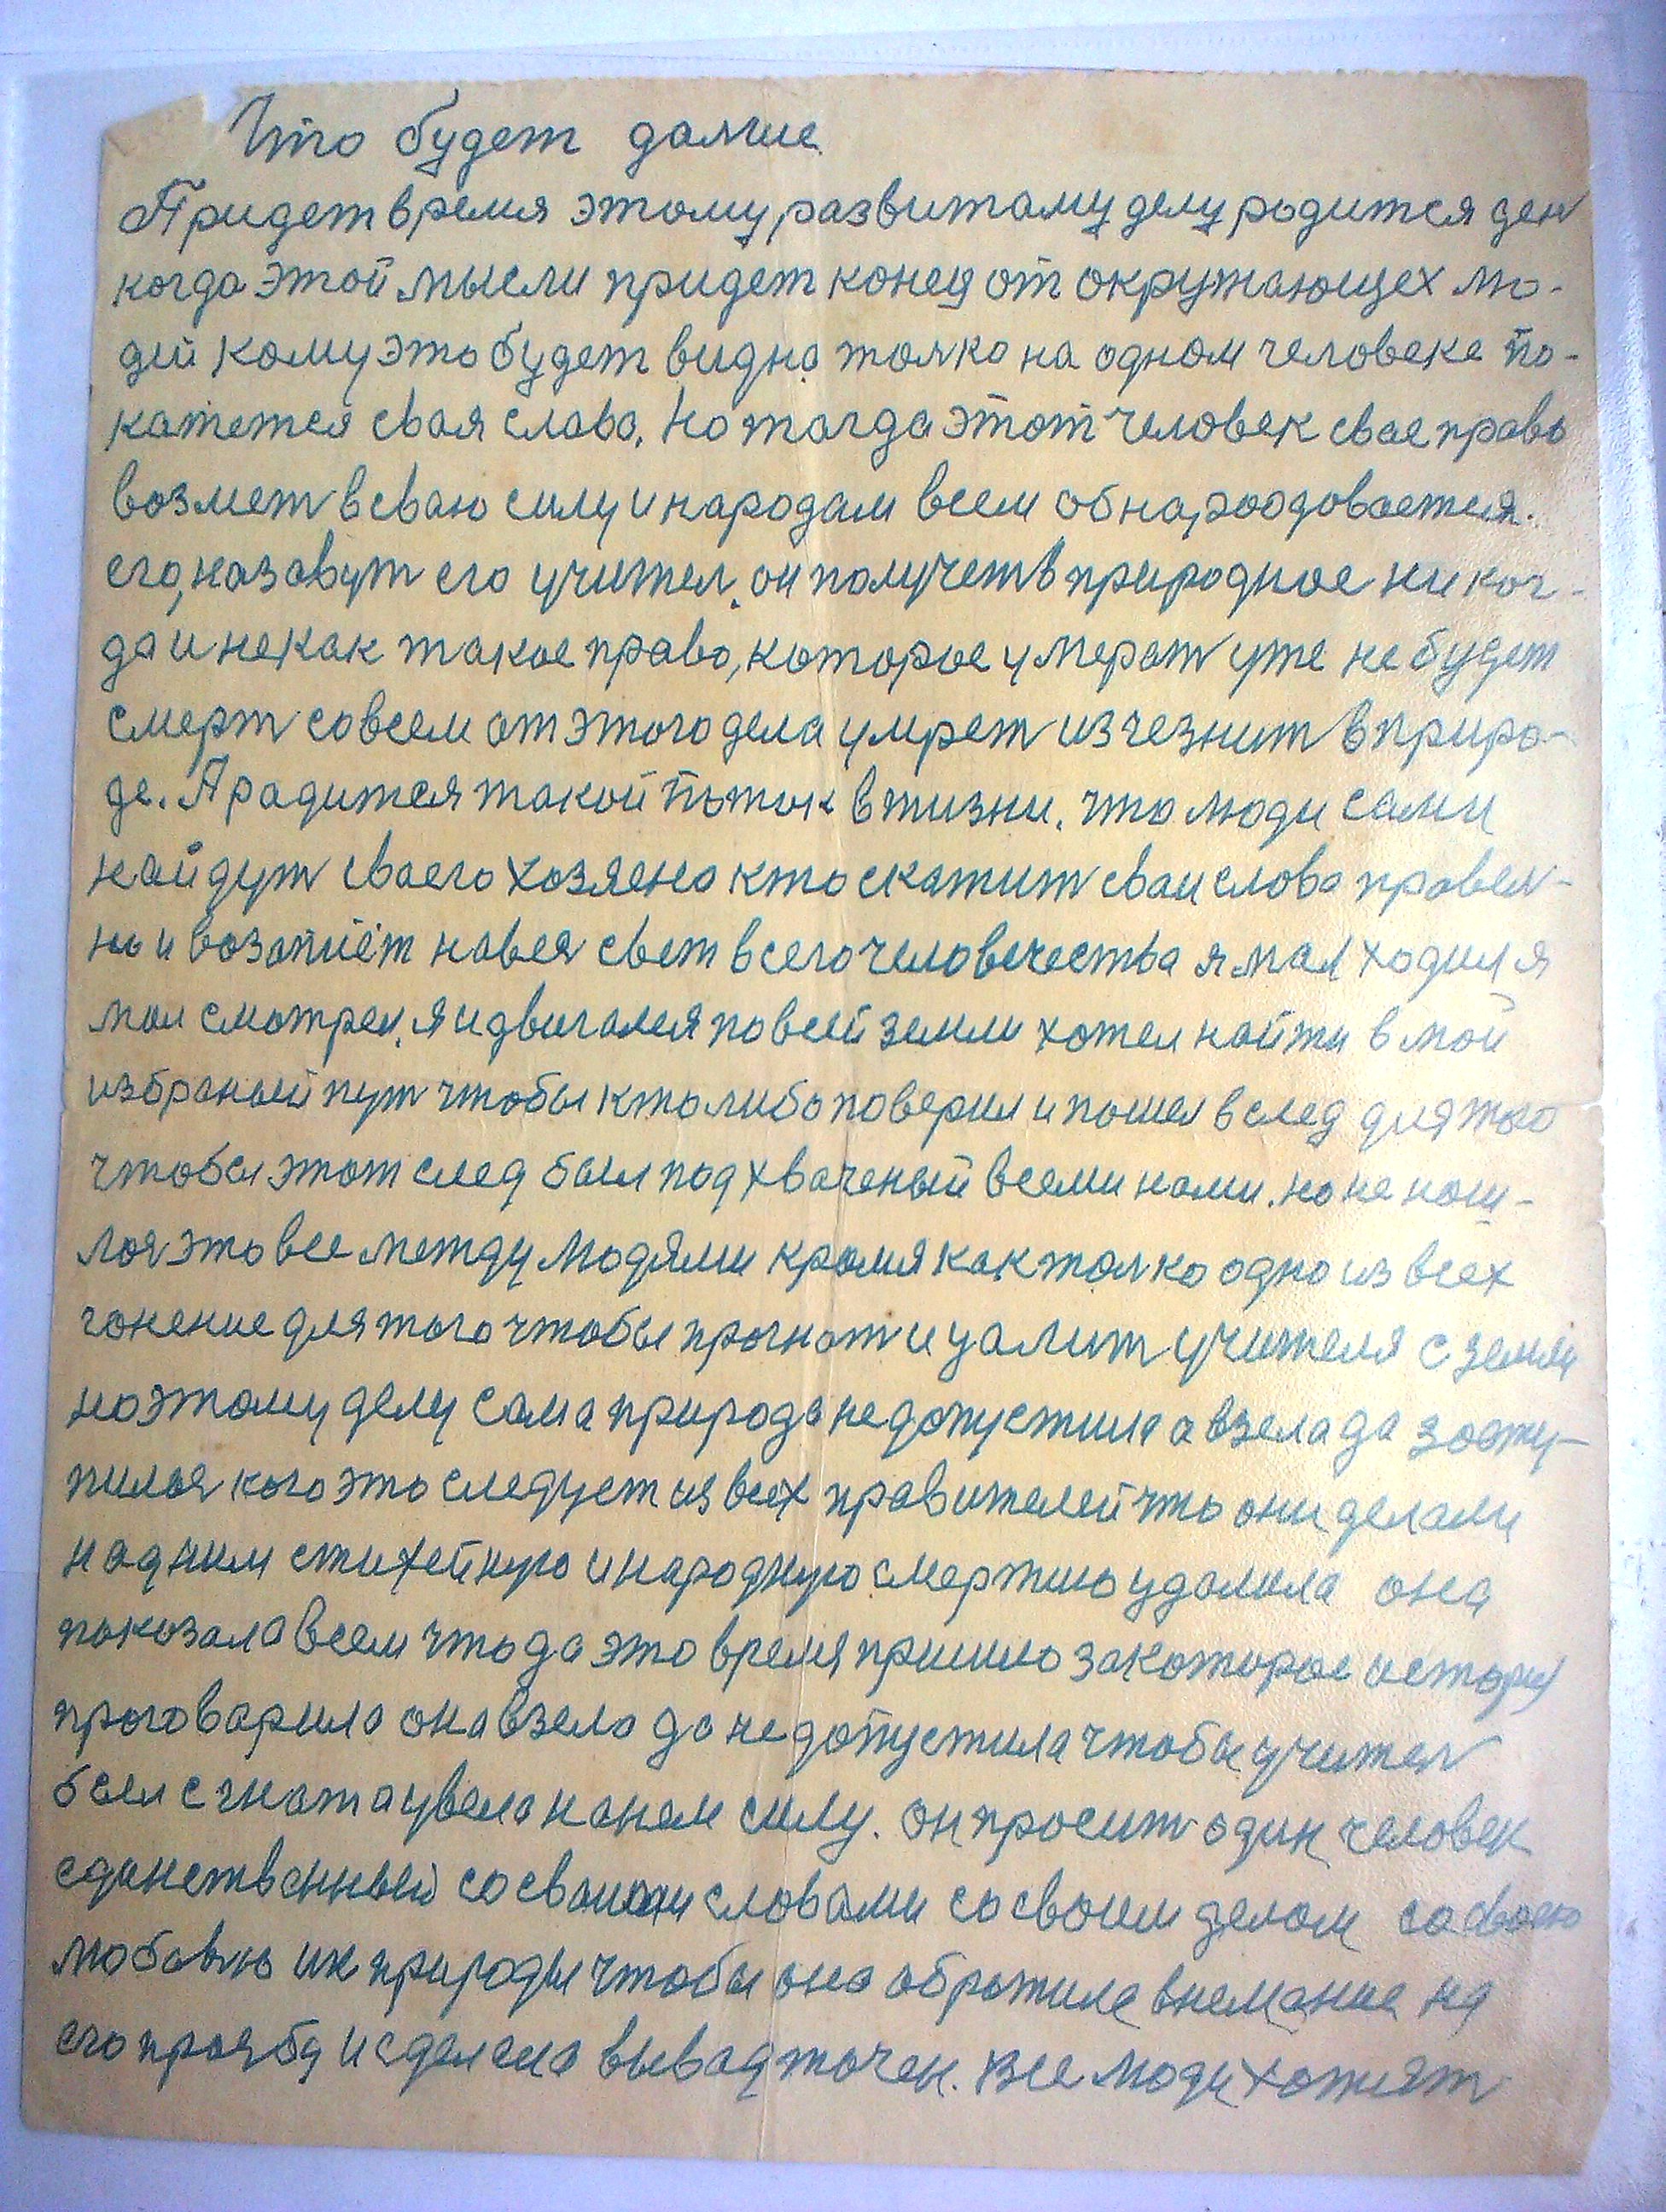 Что будет далше
Придет время этому развитаму делу родится ден
когда этой мысли придет конец от окружающех лю-
дей кому это будет видно толко на одном человеке по-
кажется своя слава. Но тагда этот человек свае право
возмет в сваю силу и народам всем обнароодовается.
его, назавут его учител. он получет в природное ни ког-
да и некак такое право, которое умерат уже не будет
смерт совсем от этого дела умрет изчезнит в приро-
де. А радится такой поток в жизни. что люди сами
найдут сваего хозяена кто скажит сваи слова правел-
но и возопиёт новея свет всего человечества я мол ходил я
мол смотрел. я и двигался по всей земли хотел найти в мой
избраный пут чтобы кто либо поверил и пошел в след для того
чтобы этот след был подхваченый всеми нами. но не наш-
лос это все между людями кромя как толко одно из всех
гонение для того чтобы прогнат и удалит учителя с земли
но этому делу сама природа не допустила а взела да заоту-
пилас кого это следует из всех правителей что они делали
над ним стихейную и народную смертию удалила она
показала всем что да это время пришло за которое истори
проговарила она взела да не допустила чтобы учител
был с гнат а увела на нем силу. он просит один человек
единственный со своими словами со своим делом со своею
любовю ик природы чтобы она обратила внемание на
его прозбу и сделена вывад точен. все люди хотият